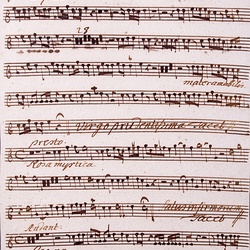 28
mater amabilis
Virgo prudentissima tacet
presto
Rosa mystica
Salus infirmorum
tacet
Andant: